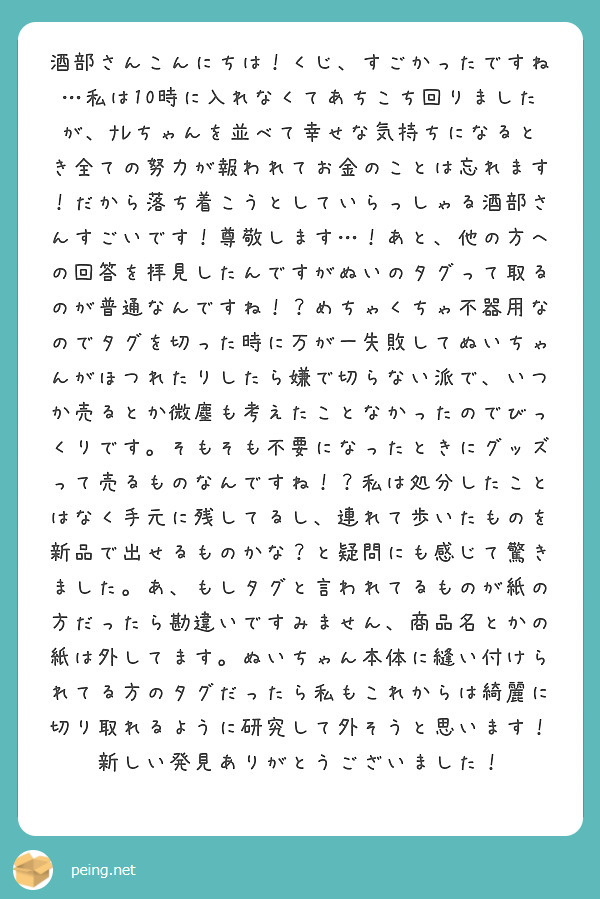 酒部さんこんにちは！くじ、すごかったですね
…私は10時に入れなくてあちこち回りました
が、ﾅﾚちゃんを並べて幸せな気持ちになると
き全ての努力が報われてお金のことは忘れます
！だから落ち着こうとしていらっしゃる酒部さ
んすごいです！尊敬します…！あと、他の方へ
の回答を拝見したんですがぬいのタグって取る
のが普通なんですね！？めちゃくちゃ不器用な
のでタグを切った時に万が一失敗してぬいちゃ
んがほつれたりしたら嫌で切らない派で、いつ
か売るとか微塵も考えたことなかったのでびっ
くりです。そもそも不要になったときにグッズ
って売るものなんですね！？私は処分したこと
はなく手元に残してるし、連れて歩いたものを
新品で出せるものかな？と疑問にも感じて驚き
ました。あ、もしタグと言われてるものが紙の
方だったら勘違いですみません、商品名とかの
紙は外してます。ぬいちゃん本体に縫い付けら
れてる方のタグだったら私もこれからは綺麗に
切り取れるように研究して外そうと思います！
新しい発見ありがとうございました！
peing.net